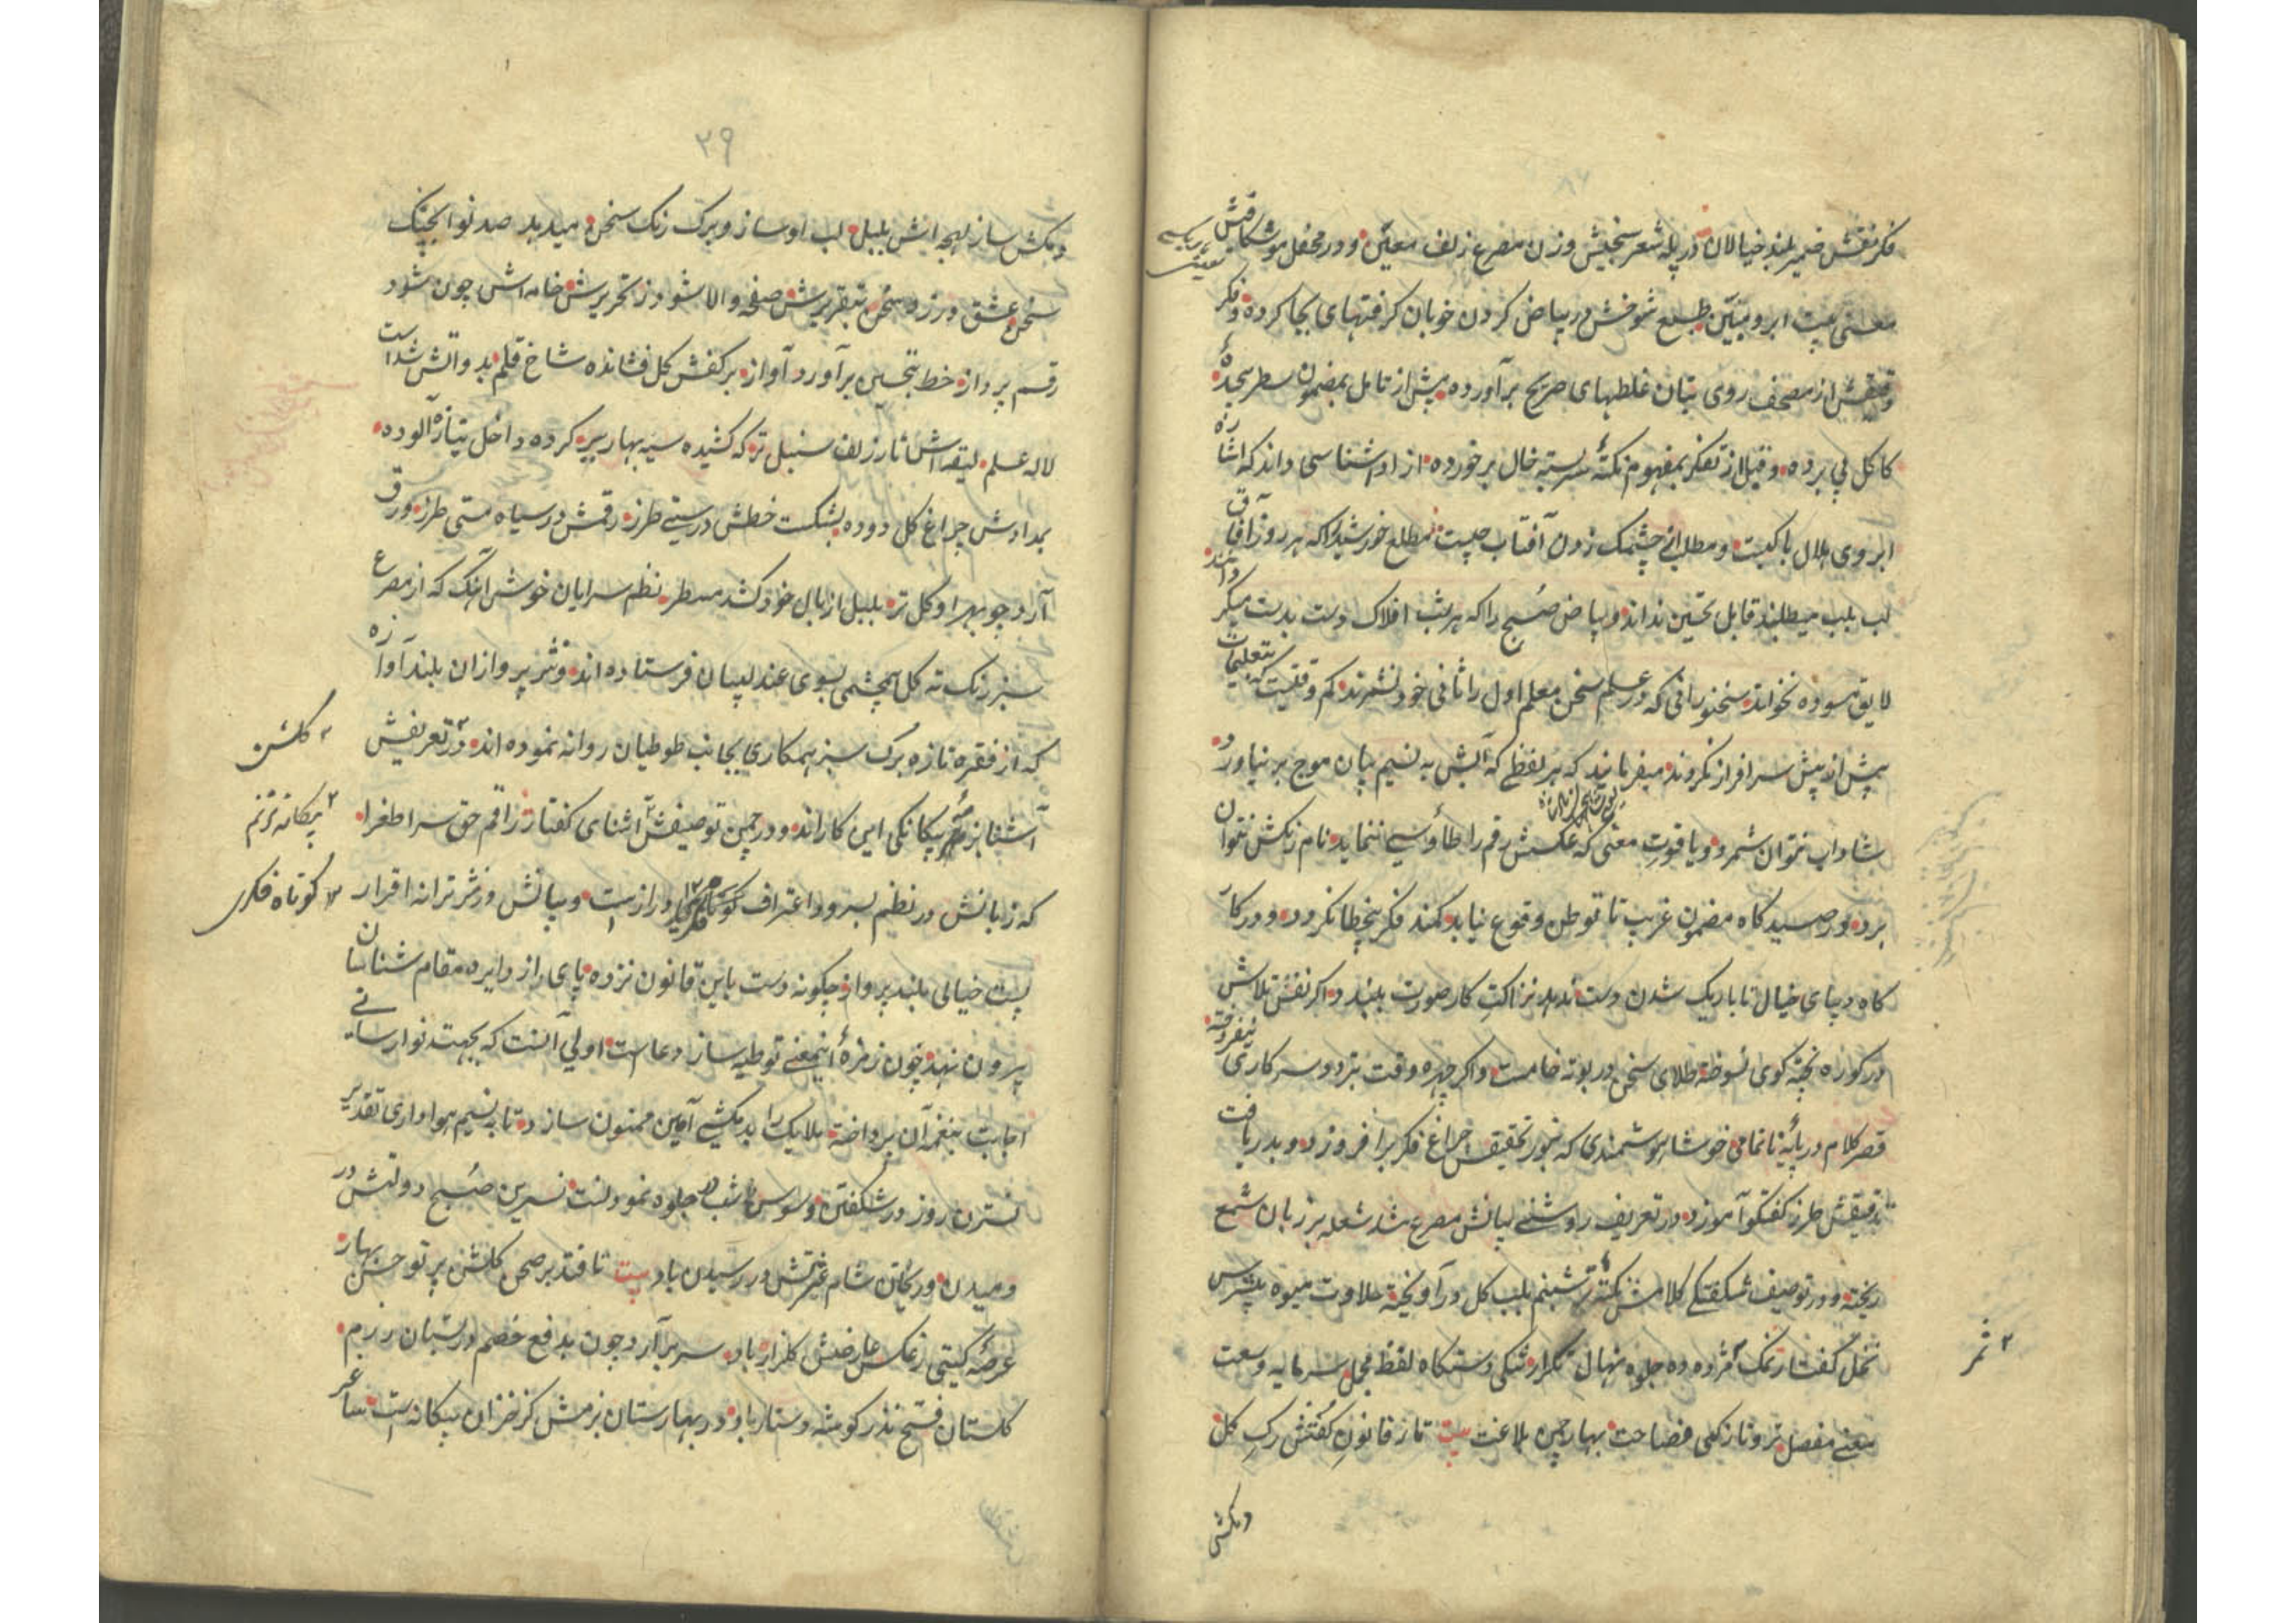 فکر نقش ضمیر بلند خیالان در پله شعر سنجیش وزن مصرع زلف معین و در محفل موشکافیش
معنی بیت ابرو مبین طبع شوخش در بیاض کردن خوبان کرفتهای بجا کرده و فکر
دقیقش از مصحف روی بتان غلطهای صریح برآورده پیش از تامل بمضمون سطر سجدهٔ
کاکل پی برده و قبل از تفکر بمفهوم نکتهٔ سربسته خال برخورده از ادا شناسی داند که اشارهٔ
ابروی هلال با کیست و مطلب از چشمک زدن آفتاب چیست مطلع خورشید را که هر روز آفاق
لب بلب میطلبند قابل تحسین نداند و بیاض صبح را که هر شب افلاک دست بدست میکردانند
لایق مسوده نخواند سخنورانی که در علم سخن معلم اول را ثانی خود نشمرند کم وقتیست که بتعلیمات
پیش از پیش سرافراز نکردند میفرمایند که هر لفظی که آبش به نسیم بیان موج برنیاورد
شاداب نتوان شمرد و یاقوت معنی که عکسش رقم را طاؤسی ننماید نام رنکش نتوان
برد در صیدکاه مضمون غریب تا توطن وقوع نیابد کمند فکر بیخطا نکردد و در کار
کاه دیبای خیال تا باریک شدن دست ندهد نزاکت کار صورت نبندد اکر نفس تلاش
در کوره پخته کوی نسوخته طلای سخن در بوته خامست و اکر چهره وقت بتردد سرکاری نیفروخته
قصر کلام در پایه ناتمامی خوشا هوشمندی که بنور تحقیق چراغ فکر برافروزد و بدریافت
تدقیقش طرز کفتکو آموزد در تعریف روشنی بیانش مصرع شد شعله بر زبان شمع
ریخته و در توصیف شکفتکی کلامش نکتهٔ تر شبنم بلب کل درآویخته حلاوت میوه پیشرس
نخل کفتار نمک مژده ده جلوه نهال تکرار تنکی دستکاه لفظ مجمل سرمایه وسعت
معنی مفصل تر و تازکی فصاحت بهار چمن بلاغت بیت تا ز قانون کفتش رک کل
دمکش
۲ ثمر
۳۹
دمکش ساز لهجه اش بلبل لب او ساز و برک رنک سخن میدهد صد نوا بچنک
سخن عشق ورزد سخن بتقریرش صفحه والا شود ز تحریرش خامه اش چون شود
رقم پرداز خط بتحسین برآورد آواز بر کفش کل فشانده شاخ قلم بدواتش شد است
لاله علم لیقه اش تار زلف سنبل تر که کشیده سیه بهار ببر کرده داخل بتازه آلوده
بمدادش چراغ کل دوده بشکست خطش درستی طرز رقمش در سیاه مستی طرز ورق
آرد چو بهر او کل تر بلبل از بال خود کشد مسطر نظم سرایان خوش آهنک که از مصرع
سبز رنک ته کل همچشمی بسوی عندلیبان فرستاده اند و نثر پردازان بلند آوازه
که از فقره تازه برک سبز همکاری بجانب طوطیان روانه نموده اند در تعریفش
آشنا بزمزمه بیکانکی این کاراند و در چمن توصیفش آشنای کفتار راقم حق سرا طغرا
که زبانش در نظم بسرود اعتراف کوتاه فکری درازست و بیانش در نثر ترانه اقرار
پست خیالی بلند پرواز چکونه دست باین قانون نزده پای از دایره مقام شناسان
بیرون نهد چون زمزمهٔ اینمعنی توطیه ساز دعاست اولی آنست که بجهت نوا رسانی
اجابت بنغمه آن پرداخته ملایک را بدمکشی آمین ممنون سازد تا به نسیم هواداری تقدیر
نسترن روز در شکفتن و سوسن شب در جلوه نمودنست نسرین صبح دولتش در
دمیدن و ریحان شام عزتش در رسیدن باد بیت تا فتد بر صحن کلشن پرتو حسن بهار
عرصهٔ کیتی ز عکس عارضش کلزار باد سر برآرد چون بدفع خصم در بستان رزم
کلستان فتح نذر کوشه دستار باد در بهارستان بزمش کز خزان بیکانه است ساغر
۱ کلشن
۲ بیکانه ترنم
۳ کوتاه فکری